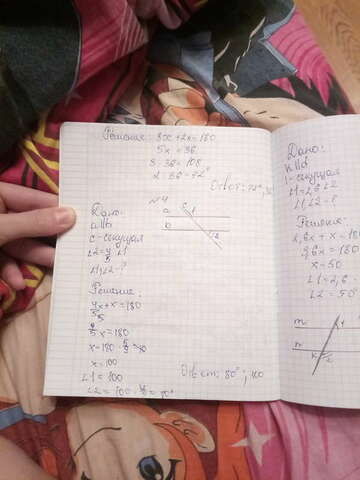 Решение: 3x+2x=180
5x=36
3·36=108
2·36=72°
Ответ: 72°;
№4
Дано:
a||b
c-секущая
∠2=4/5 ∠1
∠1,∠2-?
a
b
c
1
2
Решение:
4x/5+x=180
9/5x=180
x=180·5/9
x=100
∠1=100
∠2=100·4/5=
Ответ: 80°; 100
Дано:
k||d
-секущая
∠1,∠2-?
Решение:
2,6x+x=180
3,6x=180
x=50
∠1=2,6
∠2=50
m
n
1
k
2